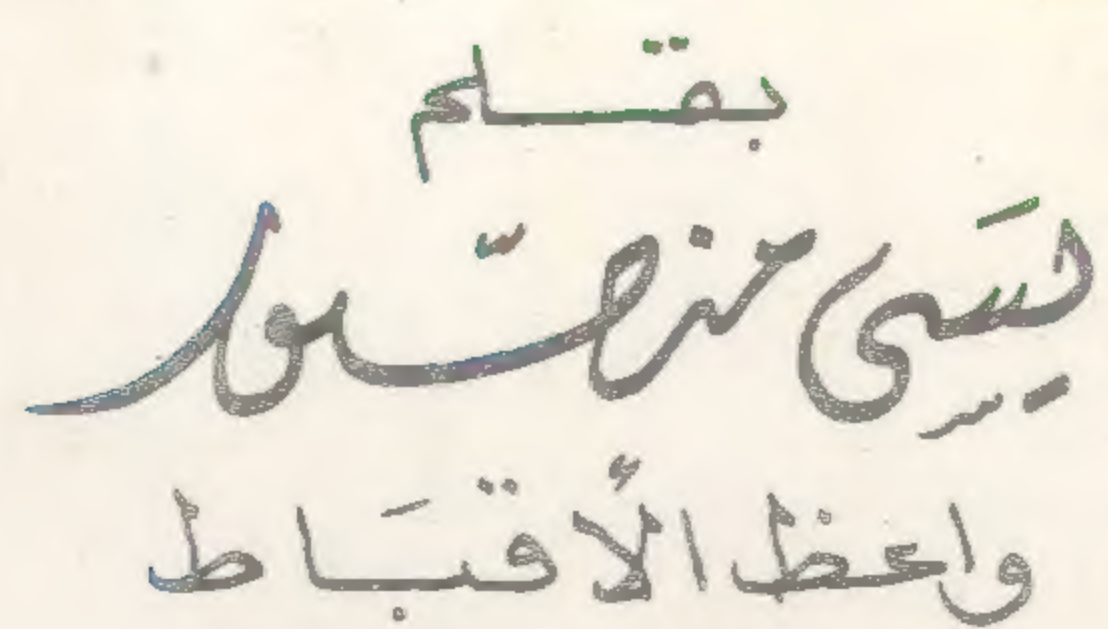 بقلم
يسى منصور
واعظ الأقباط